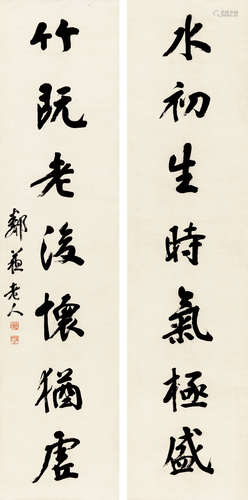 水初生時氣極盛
竹既老後懷猶虛
鄰蘓老人